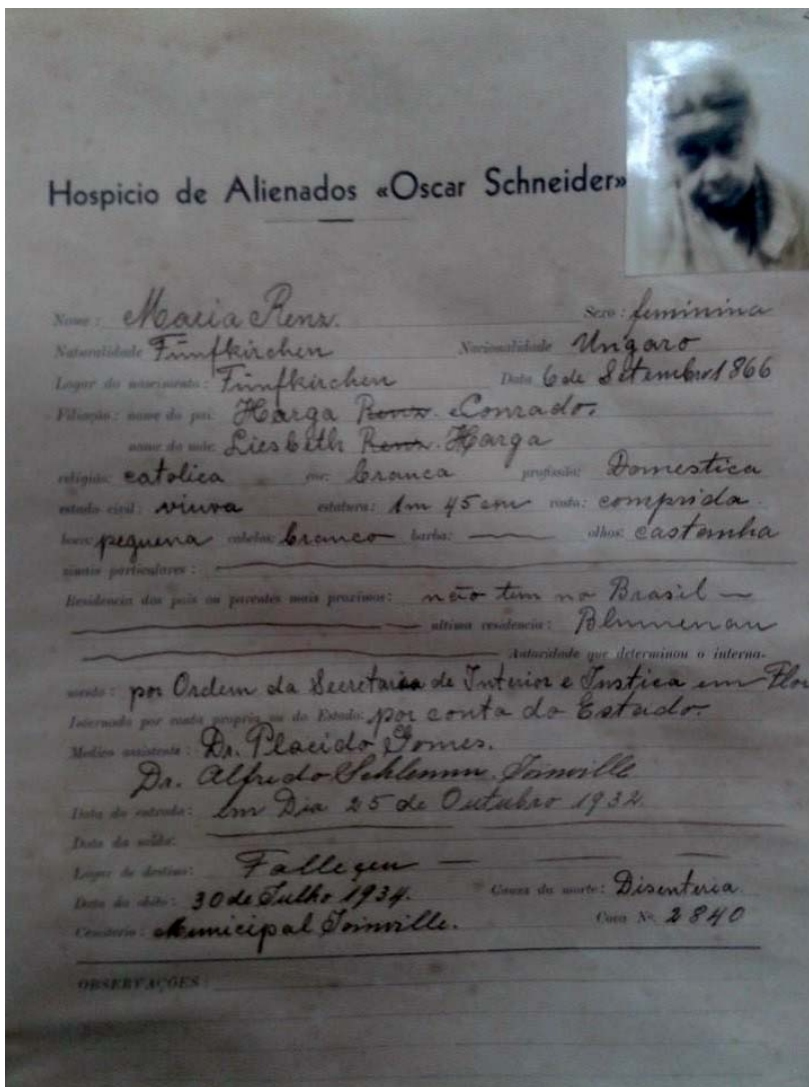 Hospicio de Alienados «Oscar Schneider»
Nome: Maria Renz. Sexo: feminina
Naturalidade Fünfkirchen Nacionalidade Ungaro
Logar do nascimento: Fünfkirchen Data 6 de Setembro 1866
Filiação: nome do pai: Harga Renz. Conrado.
nome da mãe: Liesbeth Renz. Harga
religião: catolica cor: branca profissão: Domestica
estado civil: viuva estatura: 1m 45 cm rosto: comprida.
boca: pequena cabelos: branco barba: — olhos: castanha
sinais particulares:
Residencia dos pais ou parentes mais proximos: não tem no Brasil —
ultima residencia: Blumenau
Autoridade que determinou o interna-
mento: por Ordem da Secretaria de Interior e Justiça em Flor
Internado por conta propria ou do Estado: por conta do Estado.
Medico assistente: Dr. Placido Gomes.
Dr. Alfredo Schlemm. Joinville
Data da entrada: em Dia 25 de Outubro 1932
Data da saída:
Logar de destino: Falleçeu — — —
Data do obito: 30 de Julho 1934. Causa da morte: Disenteria.
Cemiterio: Municipal Joinville. Cova Nº 2840
OBSERVAÇÕES: